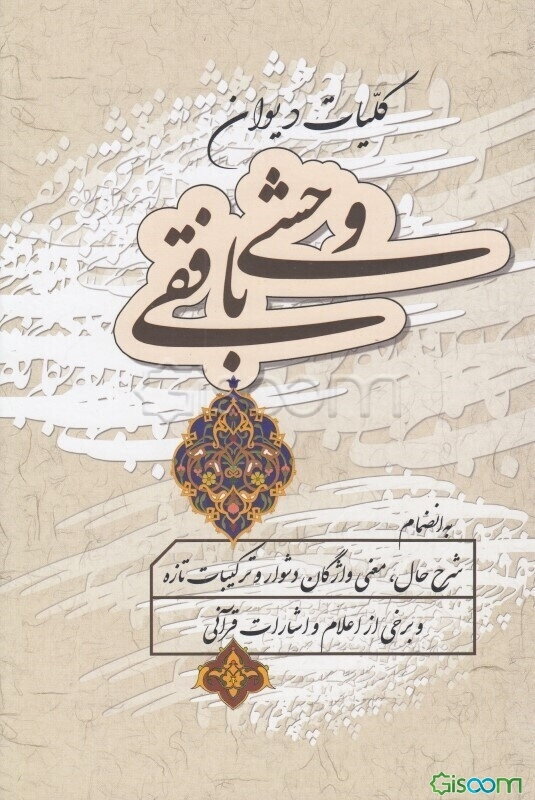 کلّیات دیوان
وحشی
بافقی
به انضمام
شرح حال، معنی واژگان دشوار و ترکیبات تازه
و برخی از اعلام و اشارات قرآنی
Gisoom
Gisoom